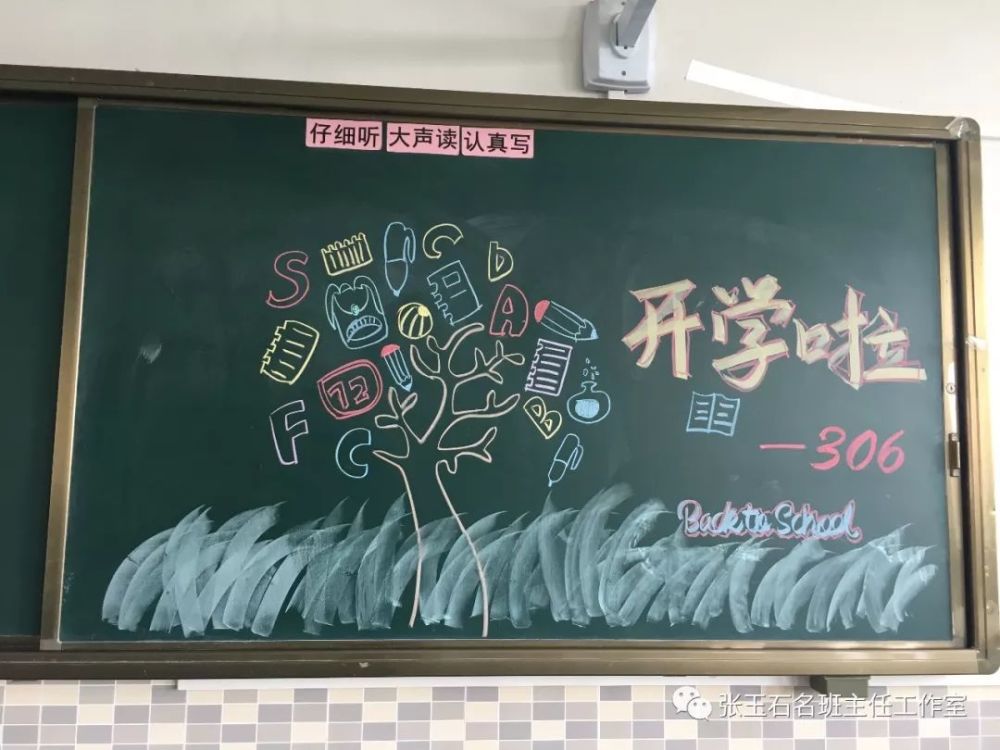 仔细听 大声读 认真写
S C D
A
72
F C B
开学啦
—306
Back to School
张玉石名班主任工作室